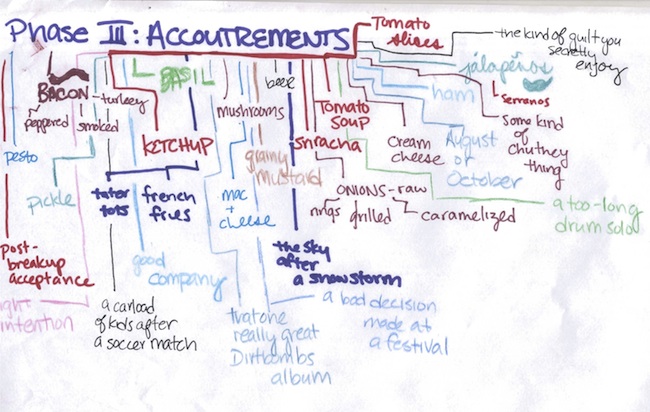 Phase III: ACCOUTREMENTS
Tomato
slices
the kind of guilt you
secretly
enjoy
jalapeños
serranos
BACON
turkey
peppered
smoked
BASIL
beer
mushrooms
TOMATO
SOUP
ham
some kind
of
chutney
thing
pesto
KETCHUP
grainy
mustard
sriracha
CREAM
CHEESE
August
or
October
pickle
tater
tots
french
fries
mac
+
cheese
ONIONS - raw
rings
grilled
caramelized
a too-long
drum solo
post-
breakup
acceptance
good
company
the sky
after
a snowstorm
intention
a carload
of kids after
a soccer match
that one
really great
Dirtbombs
album
a bad decision
made at
a festival